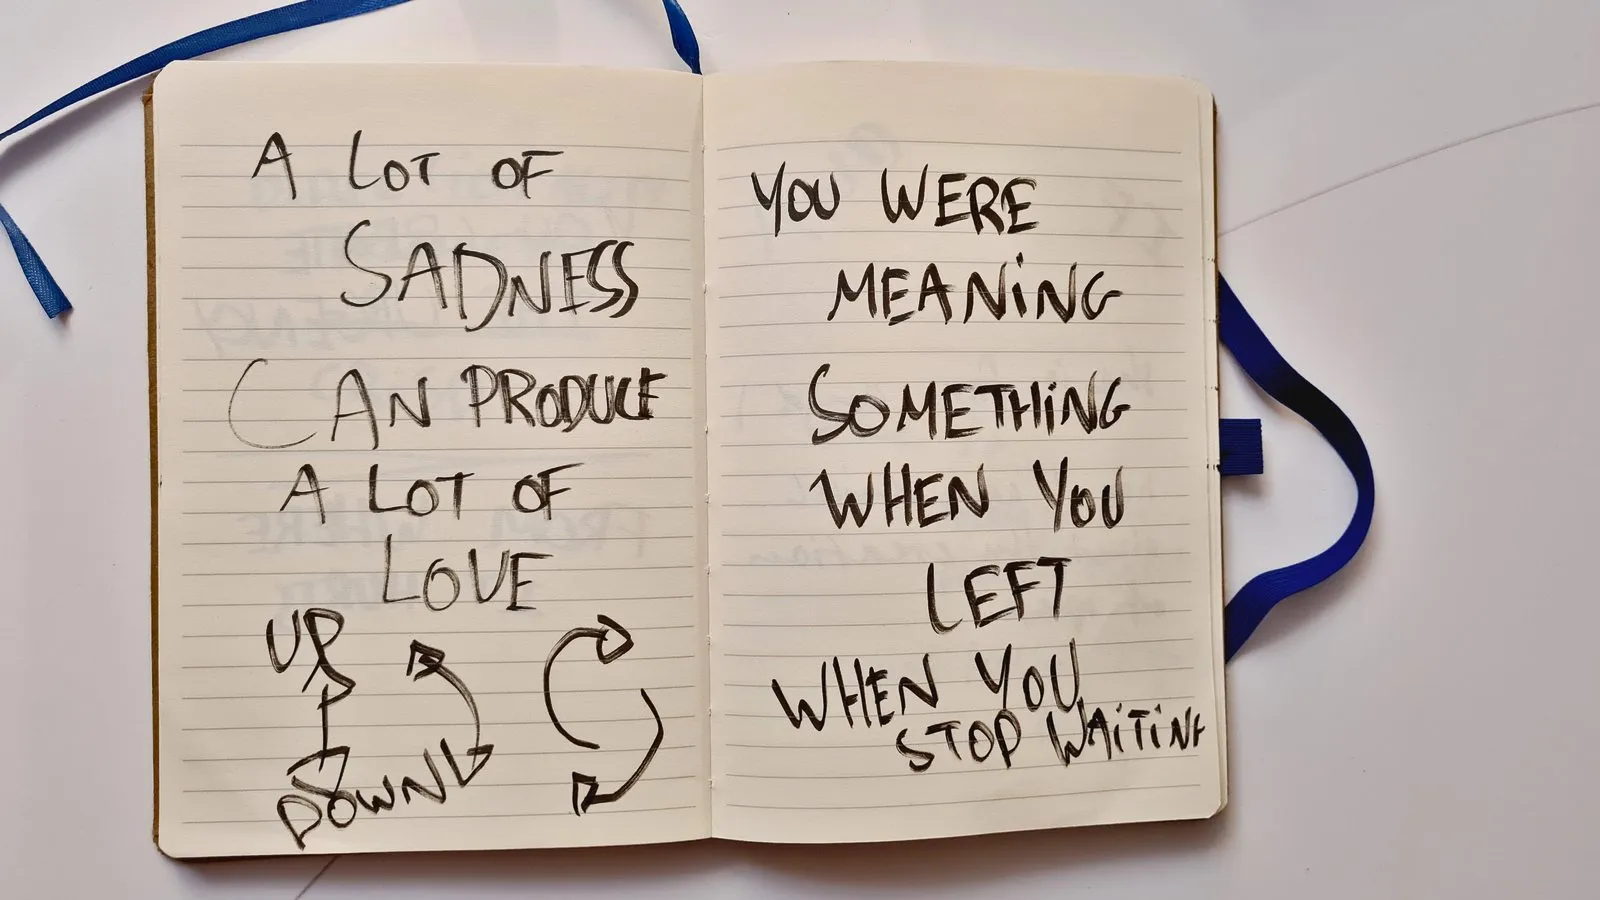 A LOT OF
SADNESS
CAN PRODUCE
A LOT OF
LOVE
UP
DOWN
YOU WERE
MEANiNG
SOMETHiNG
WHEN YOU
LEFT
WHEN YOU
STOP WAiTiNG